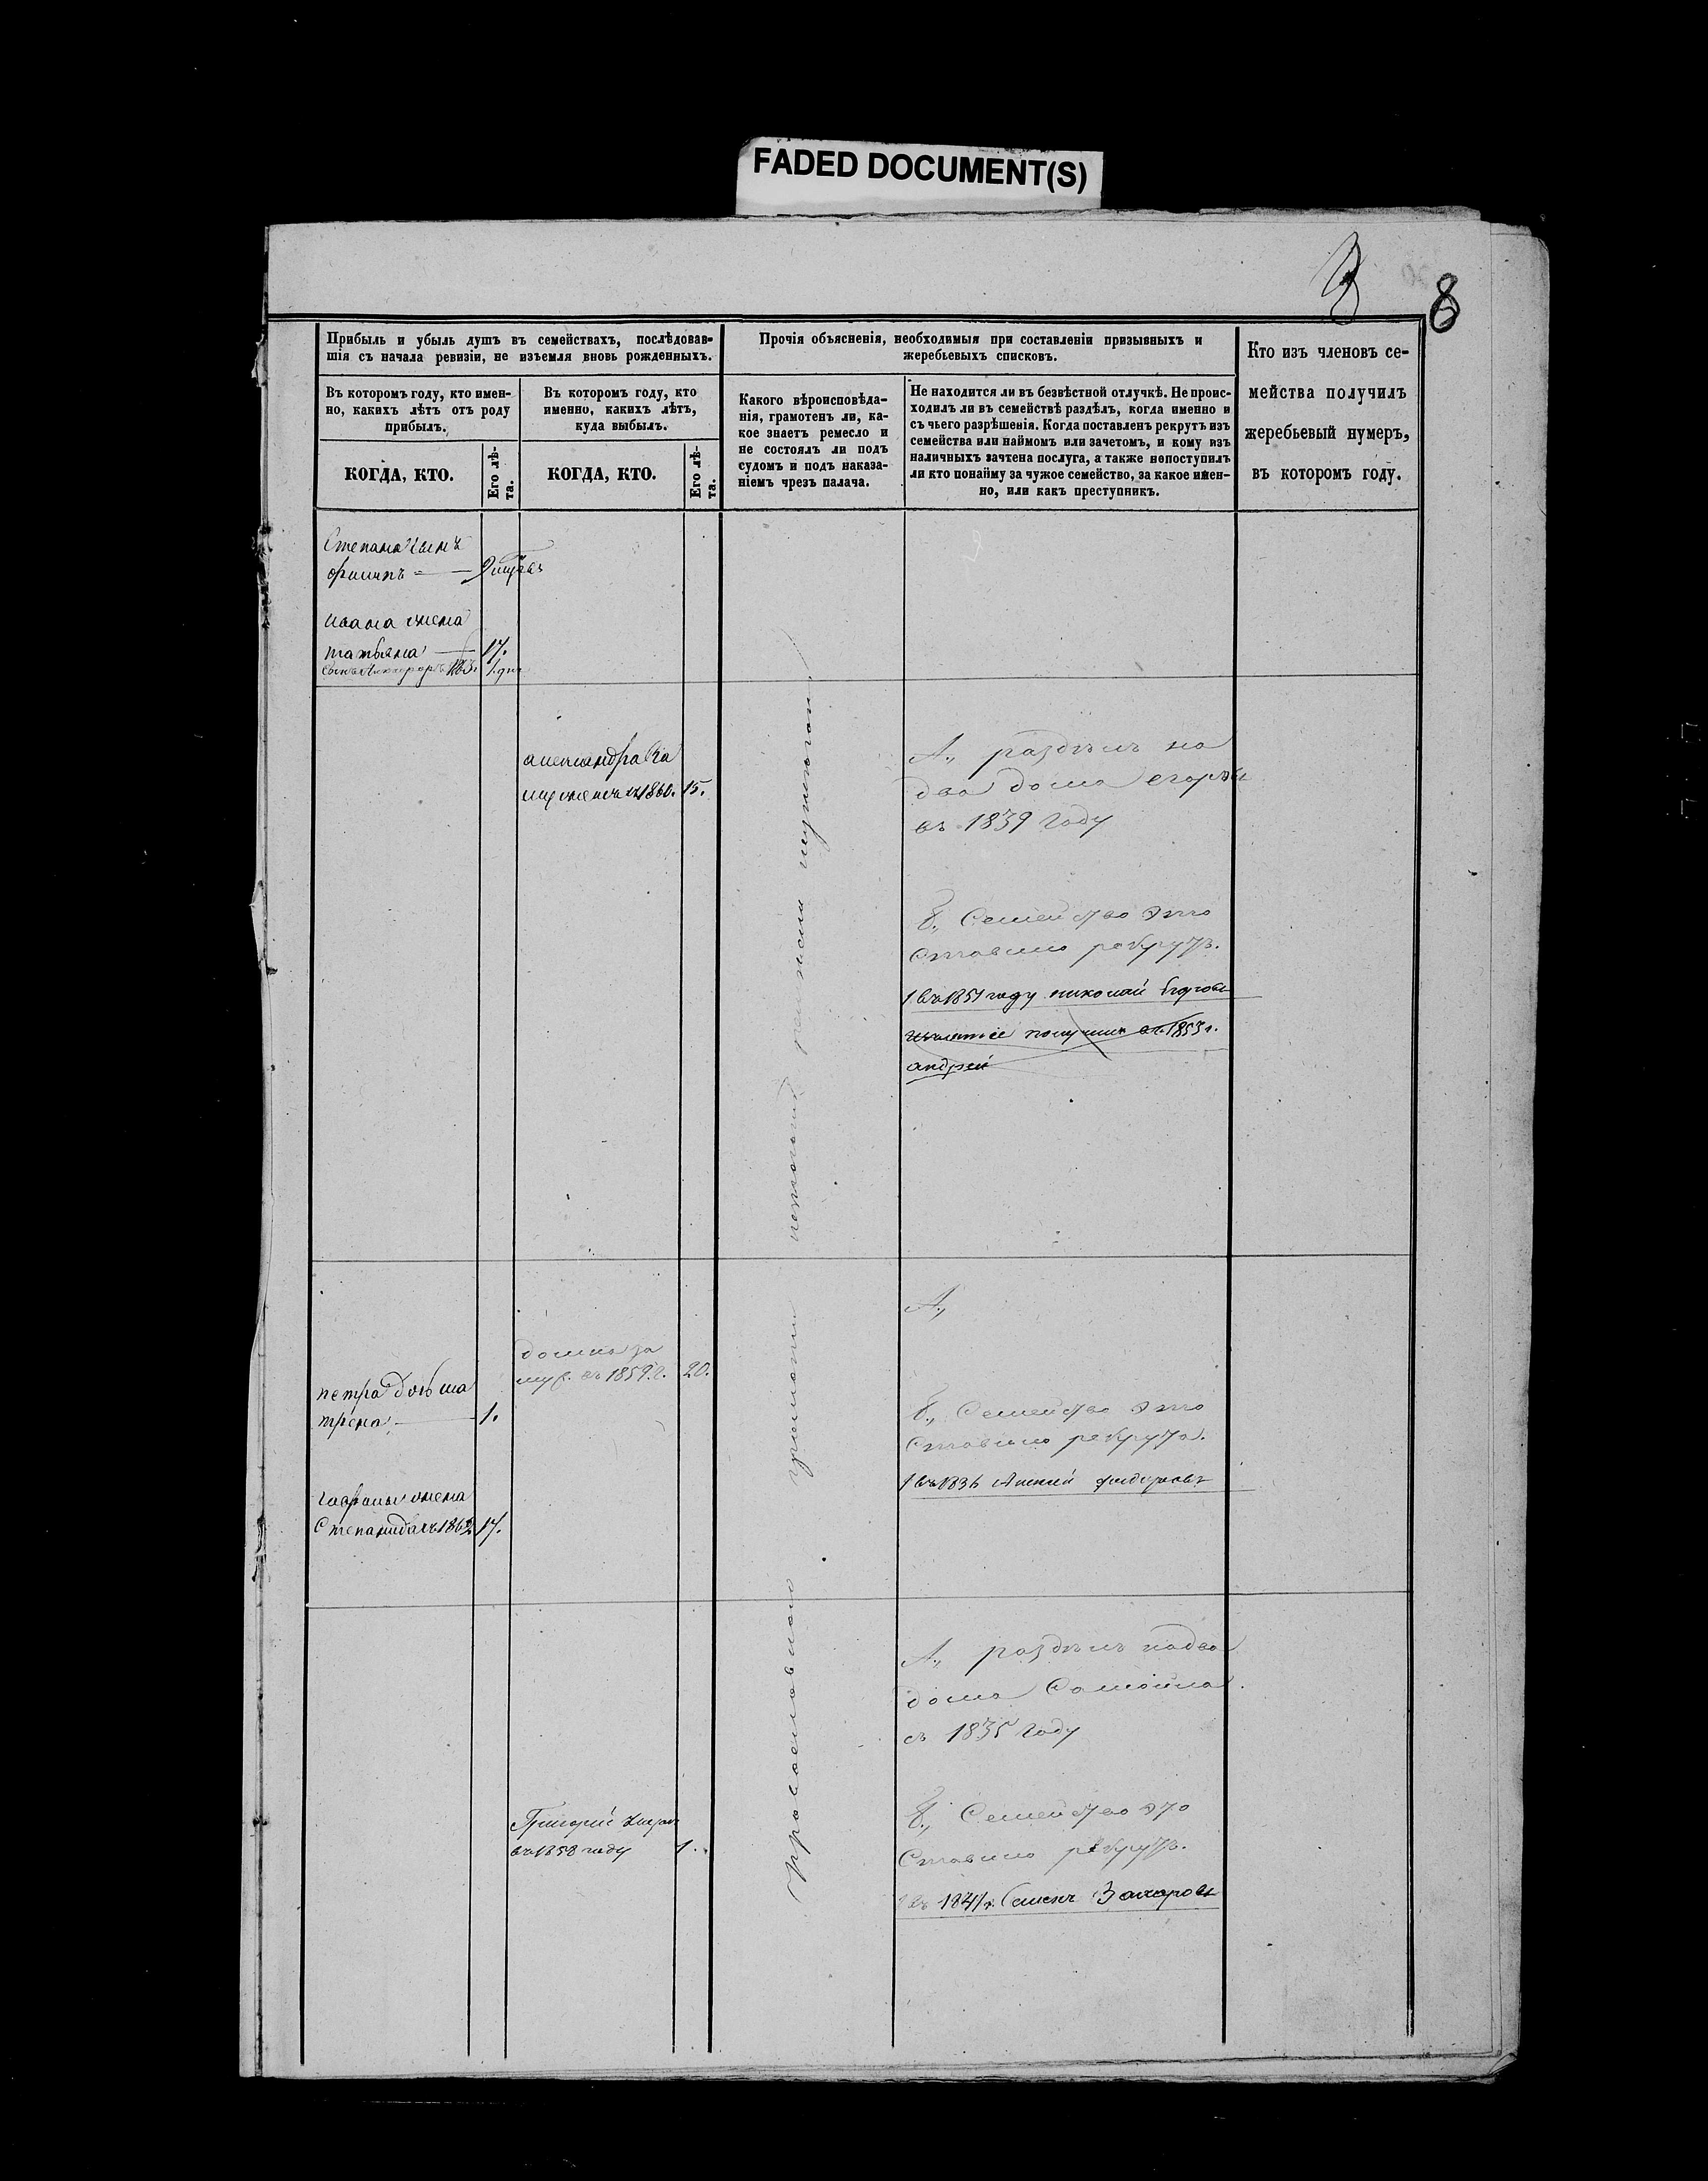 FADED DOCUMENT(S)
8
Прибыль и убыль душъ въ семействахъ, послѣдовав-
шія съ начала ревизіи, не изъемля вновь рожденныхъ.
Прочія объясненія, необходимыя при составленіи призывныхъ и
жеребьевыхъ списковъ.
Кто изъ членовъ се-
мейства получилъ
жеребьевый нумеръ,
въ которомъ году.
Въ которомъ году, кто имен-
но, какихъ лѣтъ отъ роду
прибылъ.
Въ которомъ году, кто
именно, какихъ лѣтъ,
куда выбылъ.
Какого вѣроисповѣда-
нія, грамотенъ ли, ка-
кое знаетъ ремесло и
не состоялъ ли подъ
судомъ и подъ наказа-
ніемъ чрезъ палача.
Не находится ли въ безвѣстной отлучкѣ. Не проис-
ходилъ ли въ семействѣ раздѣлъ, когда именно и
съ чьего разрѣшенія. Когда поставленъ рекрутъ изъ
семейства или наймомъ или зачетомъ, и кому изъ
наличныхъ зачтена послуга, а также непоступилъ
ли кто понайму за чужое семейство, за какое имен-
но, или какъ преступникъ.
КОГДА, КТО.
Его лѣ-
та.
КОГДА, КТО.
Его лѣ-
та.
Степана сынъ
ивана жена
татьяна — 17.
александра за
муж въ 1860. 15.
А., раздѣлъ на
два дома егоръ
въ 1839 году
б., Семейство это
ставило рекрутъ.
1 въ 1851 году николай Егоровъ
получил въ 1853 г.
андрей
А.,
домна за
муж. въ 1859 г. 20.
петра дочь ма
трена — 1.
б., Семейство это
ставило рекрута.
1 въ 1836 федоровъ
гаврилы жена
Степанида въ 1862 17.
А., раздѣлъ надва
дома Самойла
въ 1835 году
Григорий умеръ
въ 1858 году 1.
б., Семейство это
Ставило рекрутъ.
1 въ 1841 г. Семенъ Захаровъ
Православнаго